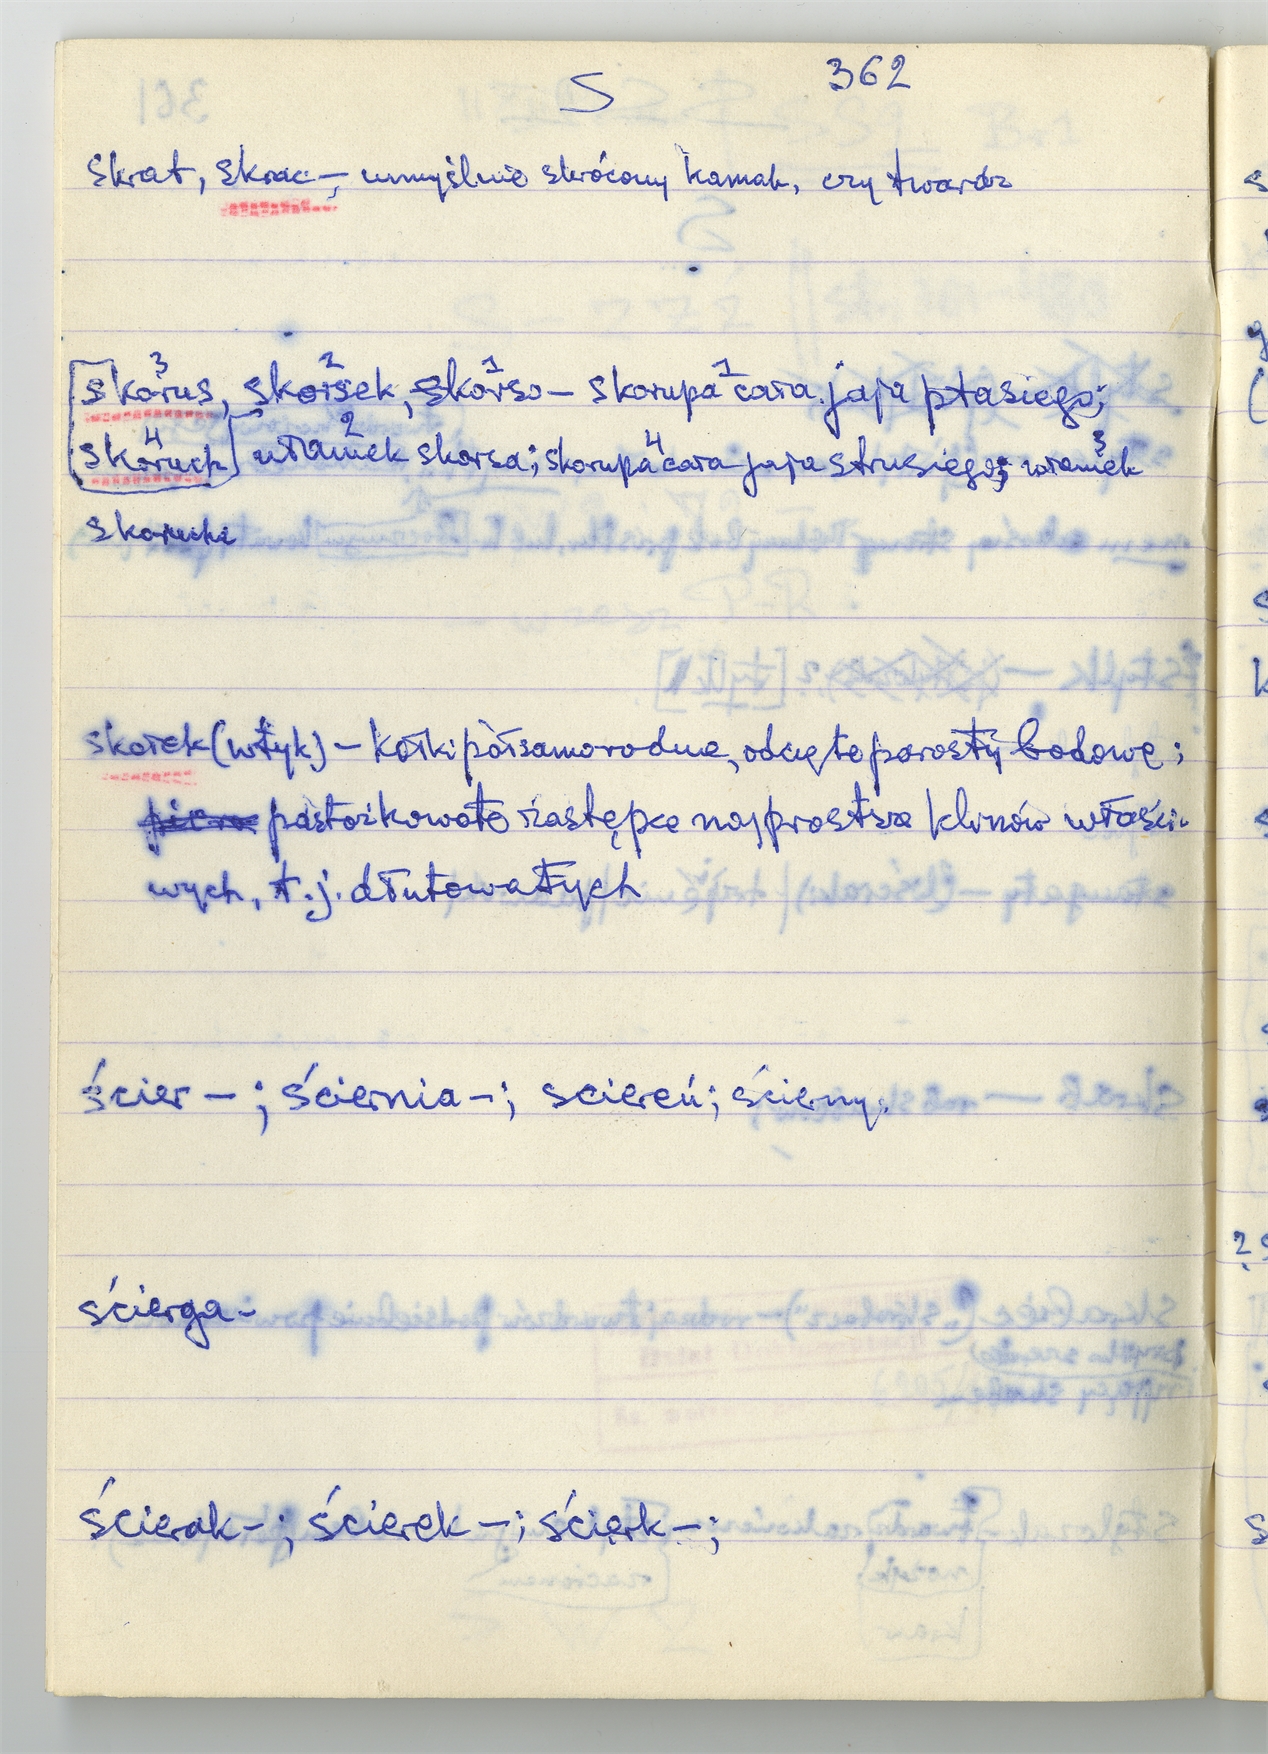 S 362
skrat, skrac –, umyślnie skrócony kamak, czy twardz
skorus, skorsek, skorso – skorupa cała jaja ptasiego;
skoruch ułamek skorsa; skorupa cała jaja strusiego; ułamek
skorucha
skołek (wtyk) – kołki półsamorodne, odcięte porosty bodowe;
pastorkowate zastępce najprostsze klinów właści-
wych, t.j. dłutowatych
ścier – ; ściernia – ; ściereń; ścierny;
ścierga –
ścierak – ; ścierek – ; ścierk – ;